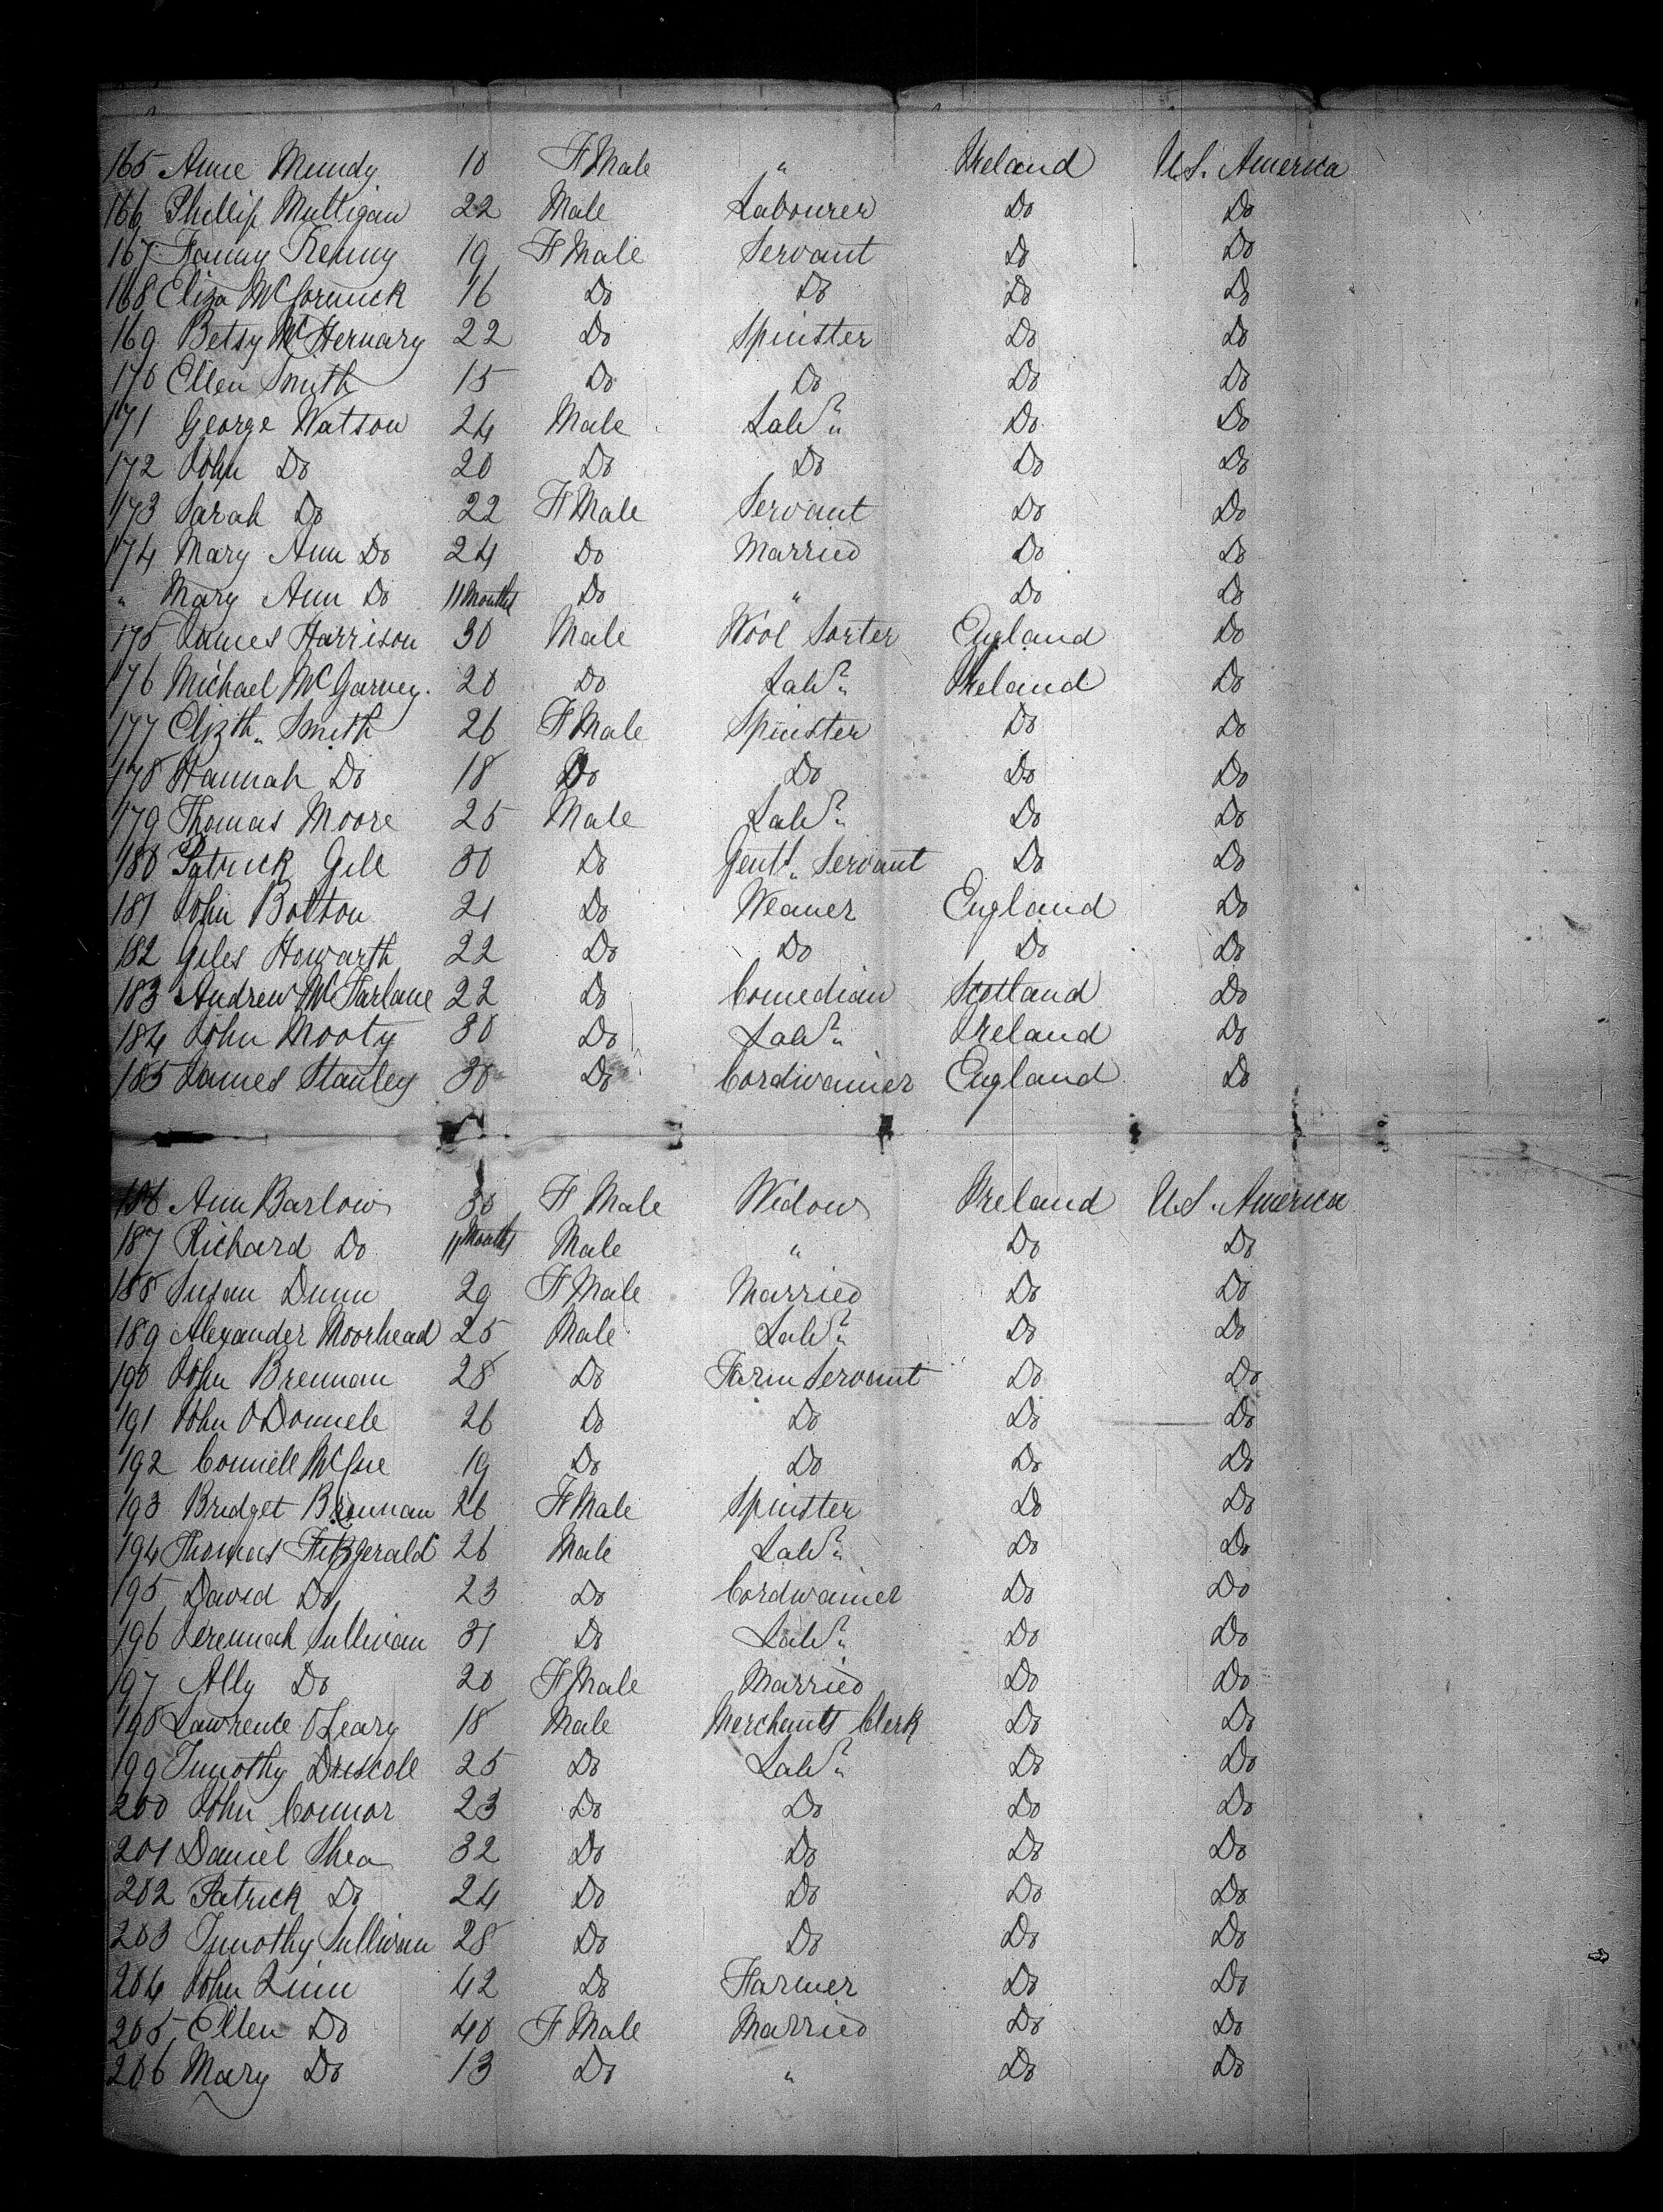 165 Anne Mundy 10 F Male " Ireland U.S. America
166 Phillip Mulligan 22 Male Labourer Do Do
167 Fanny Kenny 19 F Male Servant Do Do
168 Eliza McCormick 16 Do Do Do Do
169 Betsy McHernary 22 Do Spinster Do Do
170 Ellen Smith 15 Do Do Do Do
171 George Watson 24 Male Labr Do Do
172 John Do 20 Do Do Do Do
173 Sarah Do 22 F Male Servant Do Do
174 Mary Ann Do 24 Do Married Do Do
" Mary Ann Do 11 Months Do " Do Do
175 James Harrison 30 Male Wool Sorter England Do
176 Michael McGarvey. 20 Do Labr Ireland Do
177 Elizth. Smith 26 F Male Spinster Do Do
178 Hannah Do 18 Do Do Do Do
179 Thomas Moore 25 Male Labr Do Do
180 Patrick Gill 30 Do Gentl. Servant Do Do
181 John Bolton 21 Do Weaver England Do
182 Giles Howarth 22 Do Do Do Do
183 Andrew McFarlane 22 Do Comedian Scotland Do
184 John Mooty 30 Do Labr Ireland Do
185 James Stanley 30 Do Cordwainer England Do
186 Ann Barlow 30 F Male Widow Ireland U.S. America
187 Richard Do 11 Months Male " Do Do
188 Susan Dunn 29 F Male Married Do Do
189 Alexander Moorhead 25 Male Labr Do Do
190 John Brennan 28 Do Farm Servant Do Do
191 John ODonnell 26 Do Do Do Do
192 Connell McCue 19 Do Do Do Do
193 Bridget Brennan 26 F Male Spinster Do Do
194 Thomas Fitzgerald 26 Male Labr Do Do
195 David Do 23 Do Cordwainer Do Do
196 Jeremiah Sullivan 31 Do Labr Do Do
197 Ally Do 20 F Male Married Do Do
198 Lawrence OLeary 18 Male Merchants Clerk Do Do
199 Timothy Driscoll 25 Do Labr Do Do
200 John Connor 23 Do Do Do Do
201 Daniel Shea 32 Do Do Do Do
202 Patrick Do 24 Do Do Do Do
203 Timothy Sullivan 28 Do Do Do Do
204 John Linn 42 Do Farmer Do Do
205 Ellen Do 40 F Male Married Do Do
206 Mary Do 13 Do " Do Do